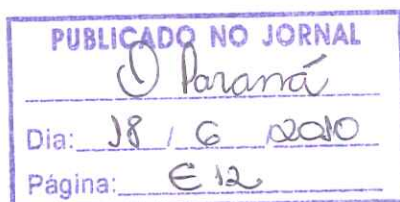 PUBLICADO NO JORNAL
O Paraná
Dia: 18 / 6 / 2010
Página: E 12